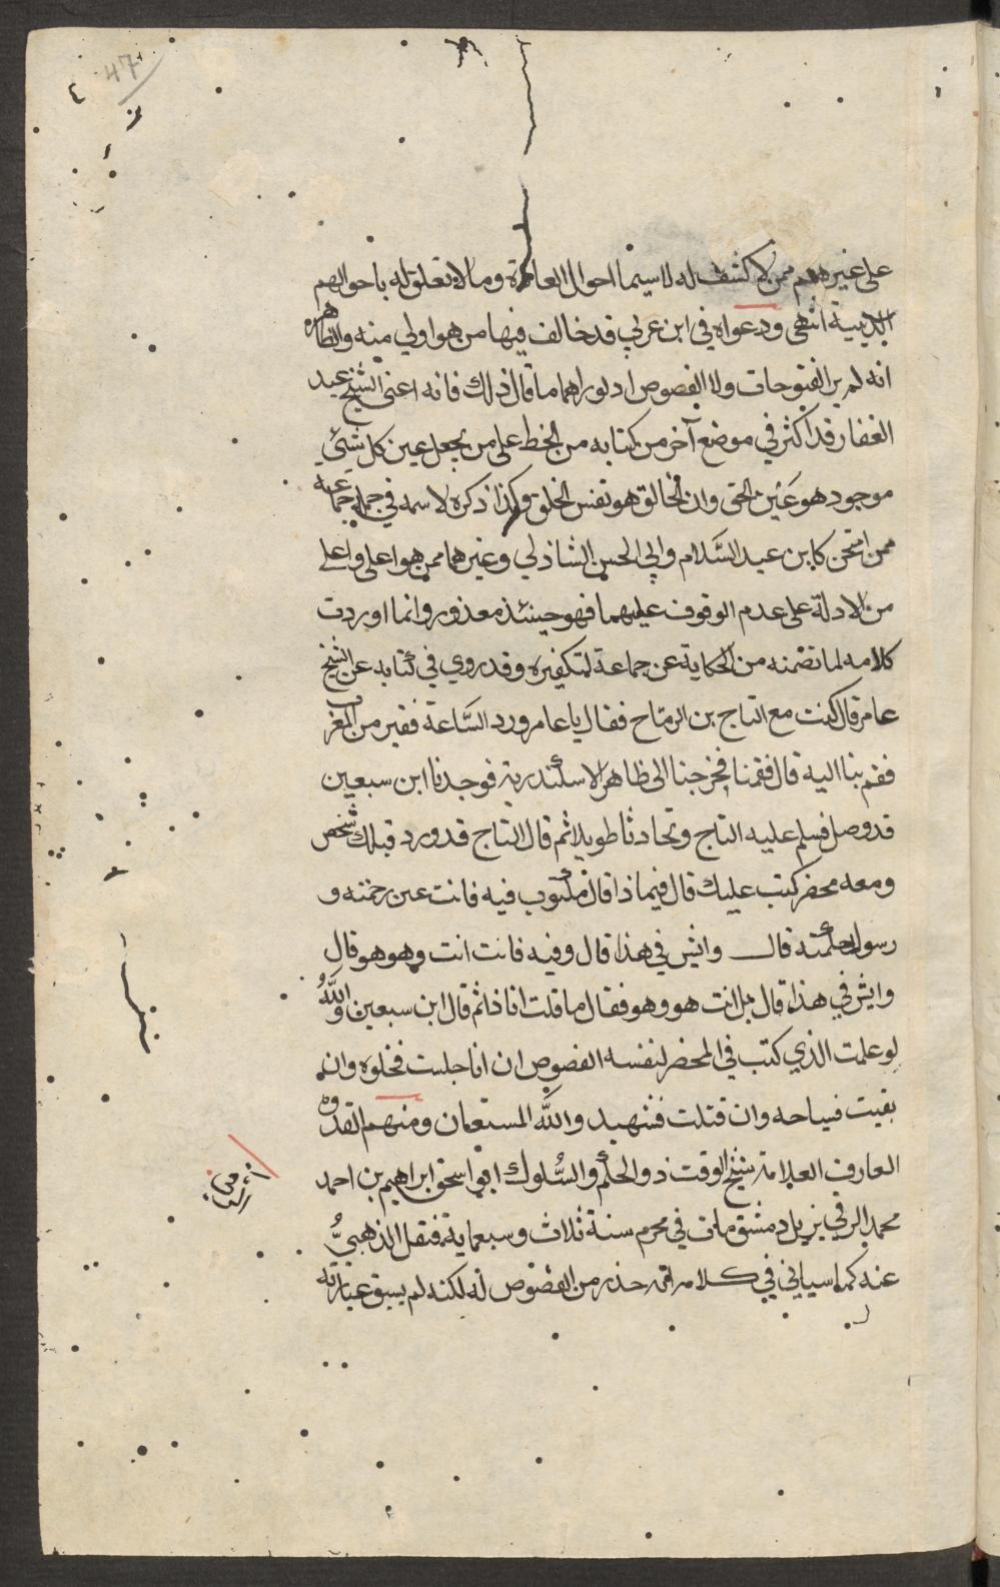 47
على غيرهم ممن لا كشف له لا سيما احوال العامة وما لا تعلق له باحوالهم
الدينية انتهى ودعواه في ابن عربي قد خالف فيها من هو اولى منه والظاهر
انه لم ير الفتوحات ولا الفصوص اد لوراهما ما قال ذلك فانه اعني الشيخ عبد
الغفار قد اكثر في موضع آخر من كتابه من الخط على من يجعل عين كل شئي
موجود هو عين الحق وان الخالق هو نفس الخلق وكذا ذكره لاسمه في جملة جماعة
ممن امتحن كابن عبد السَّلام وابي الحسن الشاذلي وغيرهما ممن هو اعلى واعلى
من الادلة على عدم الوقوف عليهما فهو حينئذ معذور وانما اوردت
كلامه لما تضمنه من الحكاية عن جماعة لتكفيره وقد روي في كتابه عن الشيخ
عامر قال كنت مع التاج بن الرماح فقال يا عامر ورد السَّاعة فقير من المغرب
فقم بنا اليه قال فقمنا فخرجنا الى ظاهر الاسكندرية فوجدنا ابن سبعين
قد وصل فسلم عليه التاج وتحادثا طويلا ثم قال التاج قد ورد قبلك شخص
ومعه محضر كتب عليك قال فيماذا قال مكتوب فيه فانت عين رحمته و
رسول حكمته قال وايش في هذا قال وفيه فانت انت وهو هو قال
وايش في هذا قال بل انت هو وهو فقال ما قلت انا ذا ثم قال ابن سبعين واللهُ
لو علمت الذي كتب في المحضر لنفسه الفصوص ان انا جلست فخلوه وان
بقيت فسياحه وان قتلت فشهيد والله المستعان ومنهم القدوة
العارف العلامة شيخ الوقت ذو الحلم والسُّلوك ابو اسحق ابراهيم بن احمد
محمد الرقي نزيل دمشق مات في محرم سنة ثلاث وسبعماية فنقل الذهبيُّ
عنه كما سياتي في كلامه انه حذر من الفصوص له لكنه لم يسق عبارته